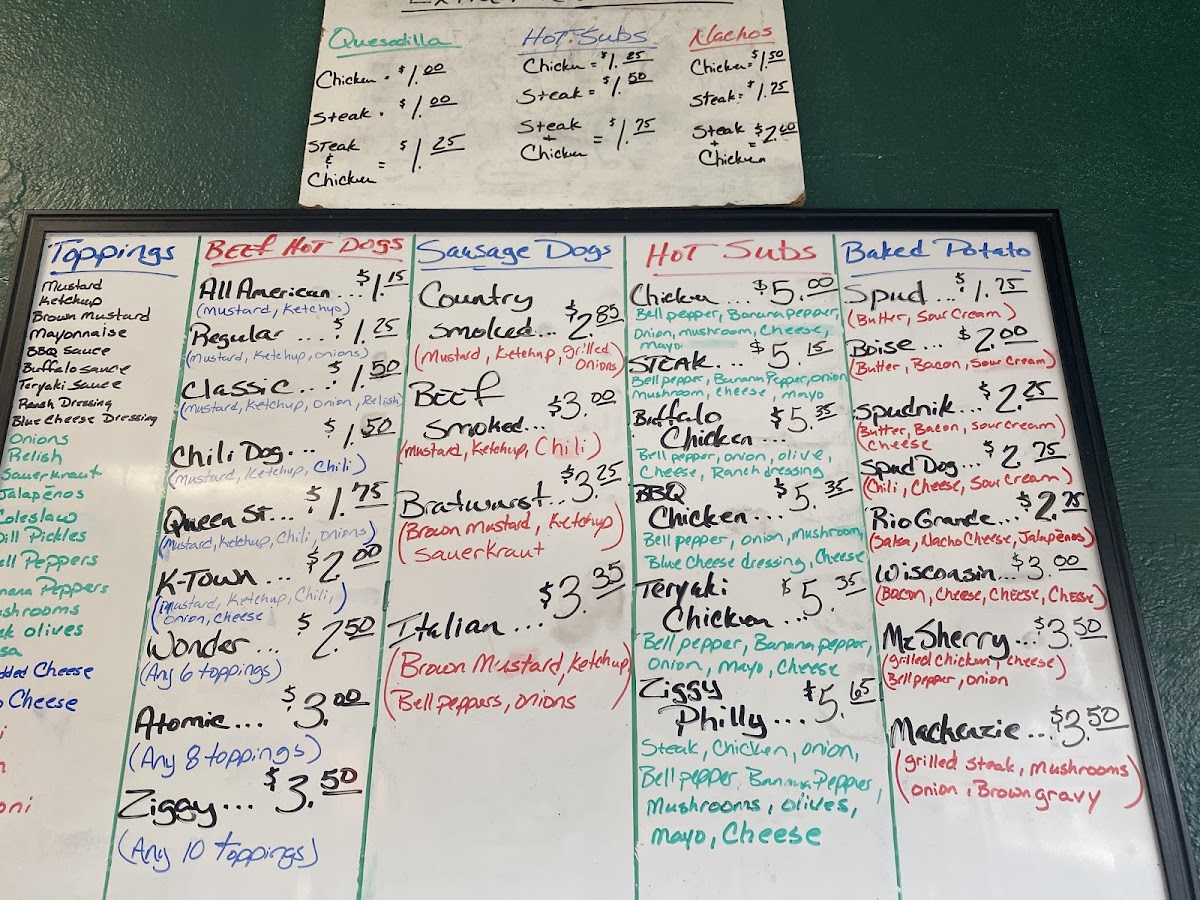 Quesadilla
Chicken = $1.00
Steak = $1.00
Steak
&
Chicken = $1.25
Hot Subs
Chicken = $1.25
Steak = $1.50
Steak
+
Chicken = $1.75
Nachos
Chicken = $1.50
Steak = $1.75
Steak
+
Chicken = $2.00
Toppings
Mustard
Ketchup
Brown Mustard
Mayonnaise
BBQ Sauce
Buffalo sauce
Teryaki Sauce
Ranch Dressing
Blue Cheese Dressing
Onions
Relish
Sauerkraut
Jalapeños
Coleslaw
Dill Pickles
ell Peppers
nana Peppers
shrooms
ck olives
sa
dded Cheese
o Cheese
oni
Beef Hot Dogs
All American... $1.15
(Mustard, Ketchup)
Regular... $1.25
(Mustard, Ketchup, onions)
Classic... $1.50
(Mustard, Ketchup, Onion, Relish)
Chili Dog... $1.50
(Mustard, Ketchup, Chili)
Queen St... $1.75
(Mustard, Ketchup, Chili, Onions)
K-Town... $2.00
(Mustard, Ketchup, Chili,
Onion, Cheese)
Wonder... $2.50
(Any 6 toppings)
Atomic... $3.00
(Any 8 toppings)
Ziggy... $3.50
(Any 10 toppings)
Sausage Dogs
Country
Smoked... $2.85
(Mustard, Ketchup, grilled
Onions)
Beef
Smoked... $3.00
(Mustard, Ketchup, Chili)
Bratwurst... $3.25
(Brown Mustard, Ketchup
Sauerkraut)
Italian... $3.35
(Brown Mustard, Ketchup
Bell peppers, onions)
Hot Subs
Chicken... $5.00
Bell pepper, Banana pepper,
Onion, mushroom, Cheese,
mayo
STEAK... $5.15
Bell pepper, Banana Pepper, onion
mushroom, cheese, mayo
Buffalo
Chicken... $5.35
Bell pepper, onion, olive,
Cheese, Ranch dressing
BBQ
Chicken... $5.35
Bell pepper, onion, mushroom
Blue Cheese dressing, Cheese
Teryaki
Chicken... $5.35
Bell pepper, Banana pepper,
Onion, mayo, Cheese
Ziggy
Philly... $5.65
Steak, Chicken, onion,
Bell pepper, Banana Pepper,
Mushrooms, olives,
mayo, Cheese
Baked Potato
Spud... $1.75
(Butter, Sour Cream)
Boise... $2.00
(Butter, Bacon, Sour Cream)
Spudnik... $2.25
(Butter, Bacon, sour cream)
Cheese
Spud Dog... $2.75
(Chili, Cheese, Sour Cream)
Rio Grande... $2.75
(Salsa, Nacho Cheese, Jalapeños)
Wisconsin... $3.00
(Bacon, Cheese, CHEESE, CheSE)
Mc Sherry... $3.50
(grilled Chicken, cheese)
Bell pepper, onion
Mackenzie... $3.50
(grilled steak, mushrooms
onion, Brown gravy)